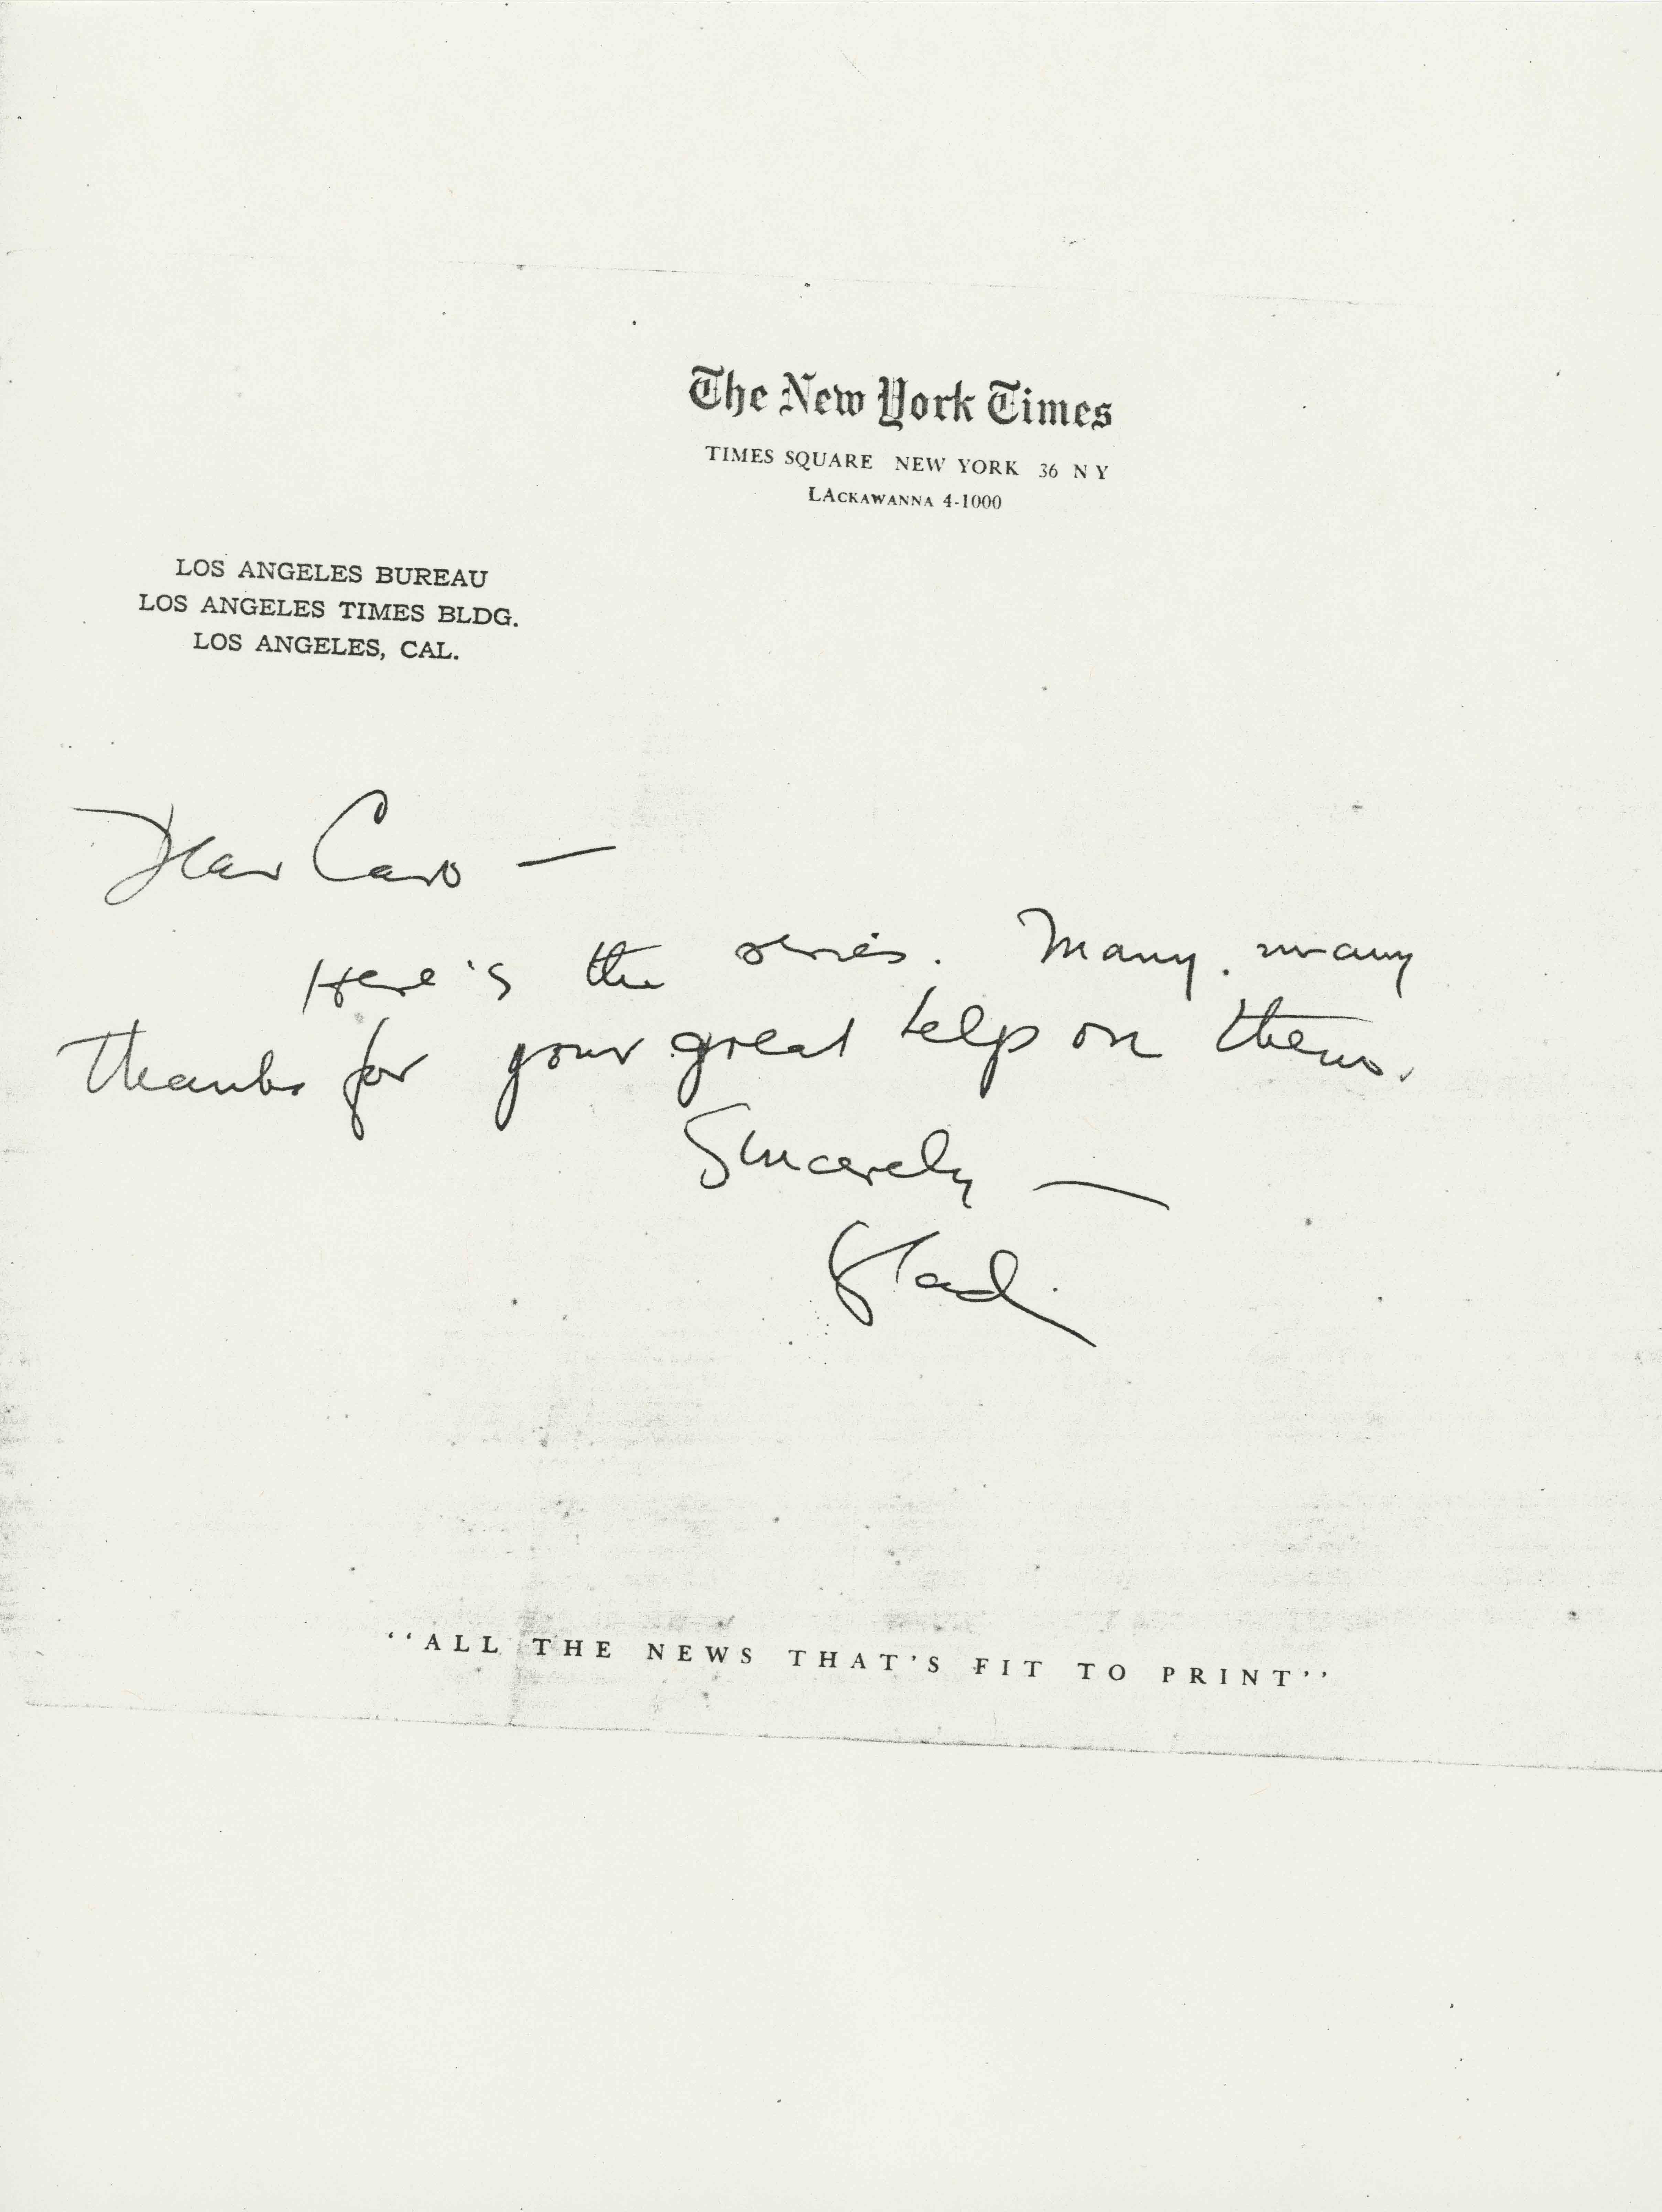 The New York Times
TIMES SQUARE NEW YORK 36 N Y
LACKAWANNA 4-1000
LOS ANGELES BUREAU
LOS ANGELES TIMES BLDG.
LOS ANGELES, CAL.
Dear Caro —
Here's the series. Many, many
thanks for your great help on them.
Sincerely —
Gladi
"ALL THE NEWS THAT'S FIT TO PRINT"